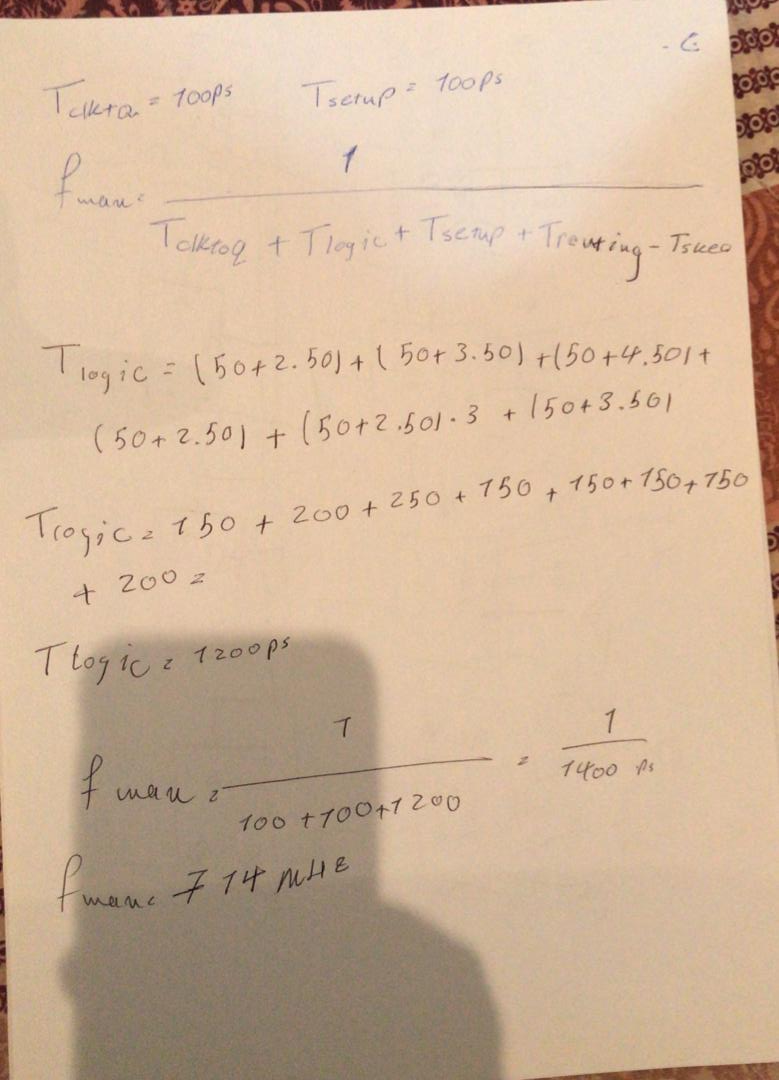 - C
Tclktq = 100ps Tsetup = 100ps
1
fmax =
Tclktoq + Tlogic + Tsetup + Trouting - Tskew
Tlogic = (50+2.50) + (50+3.50) + (50+4.50) +
(50+2.50) + (50+2.50).3 + (50+3.50)
Tlogic = 150 + 200 + 250 + 150 + 150 + 150 + 150
+ 200 =
Tlogic = 1200ps
1 1
fmax = =
100 + 100 + 1200 1400 ps
fmax = 714 MHz